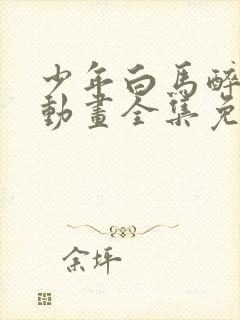 少年白馬醉
動畫全集免
余坪